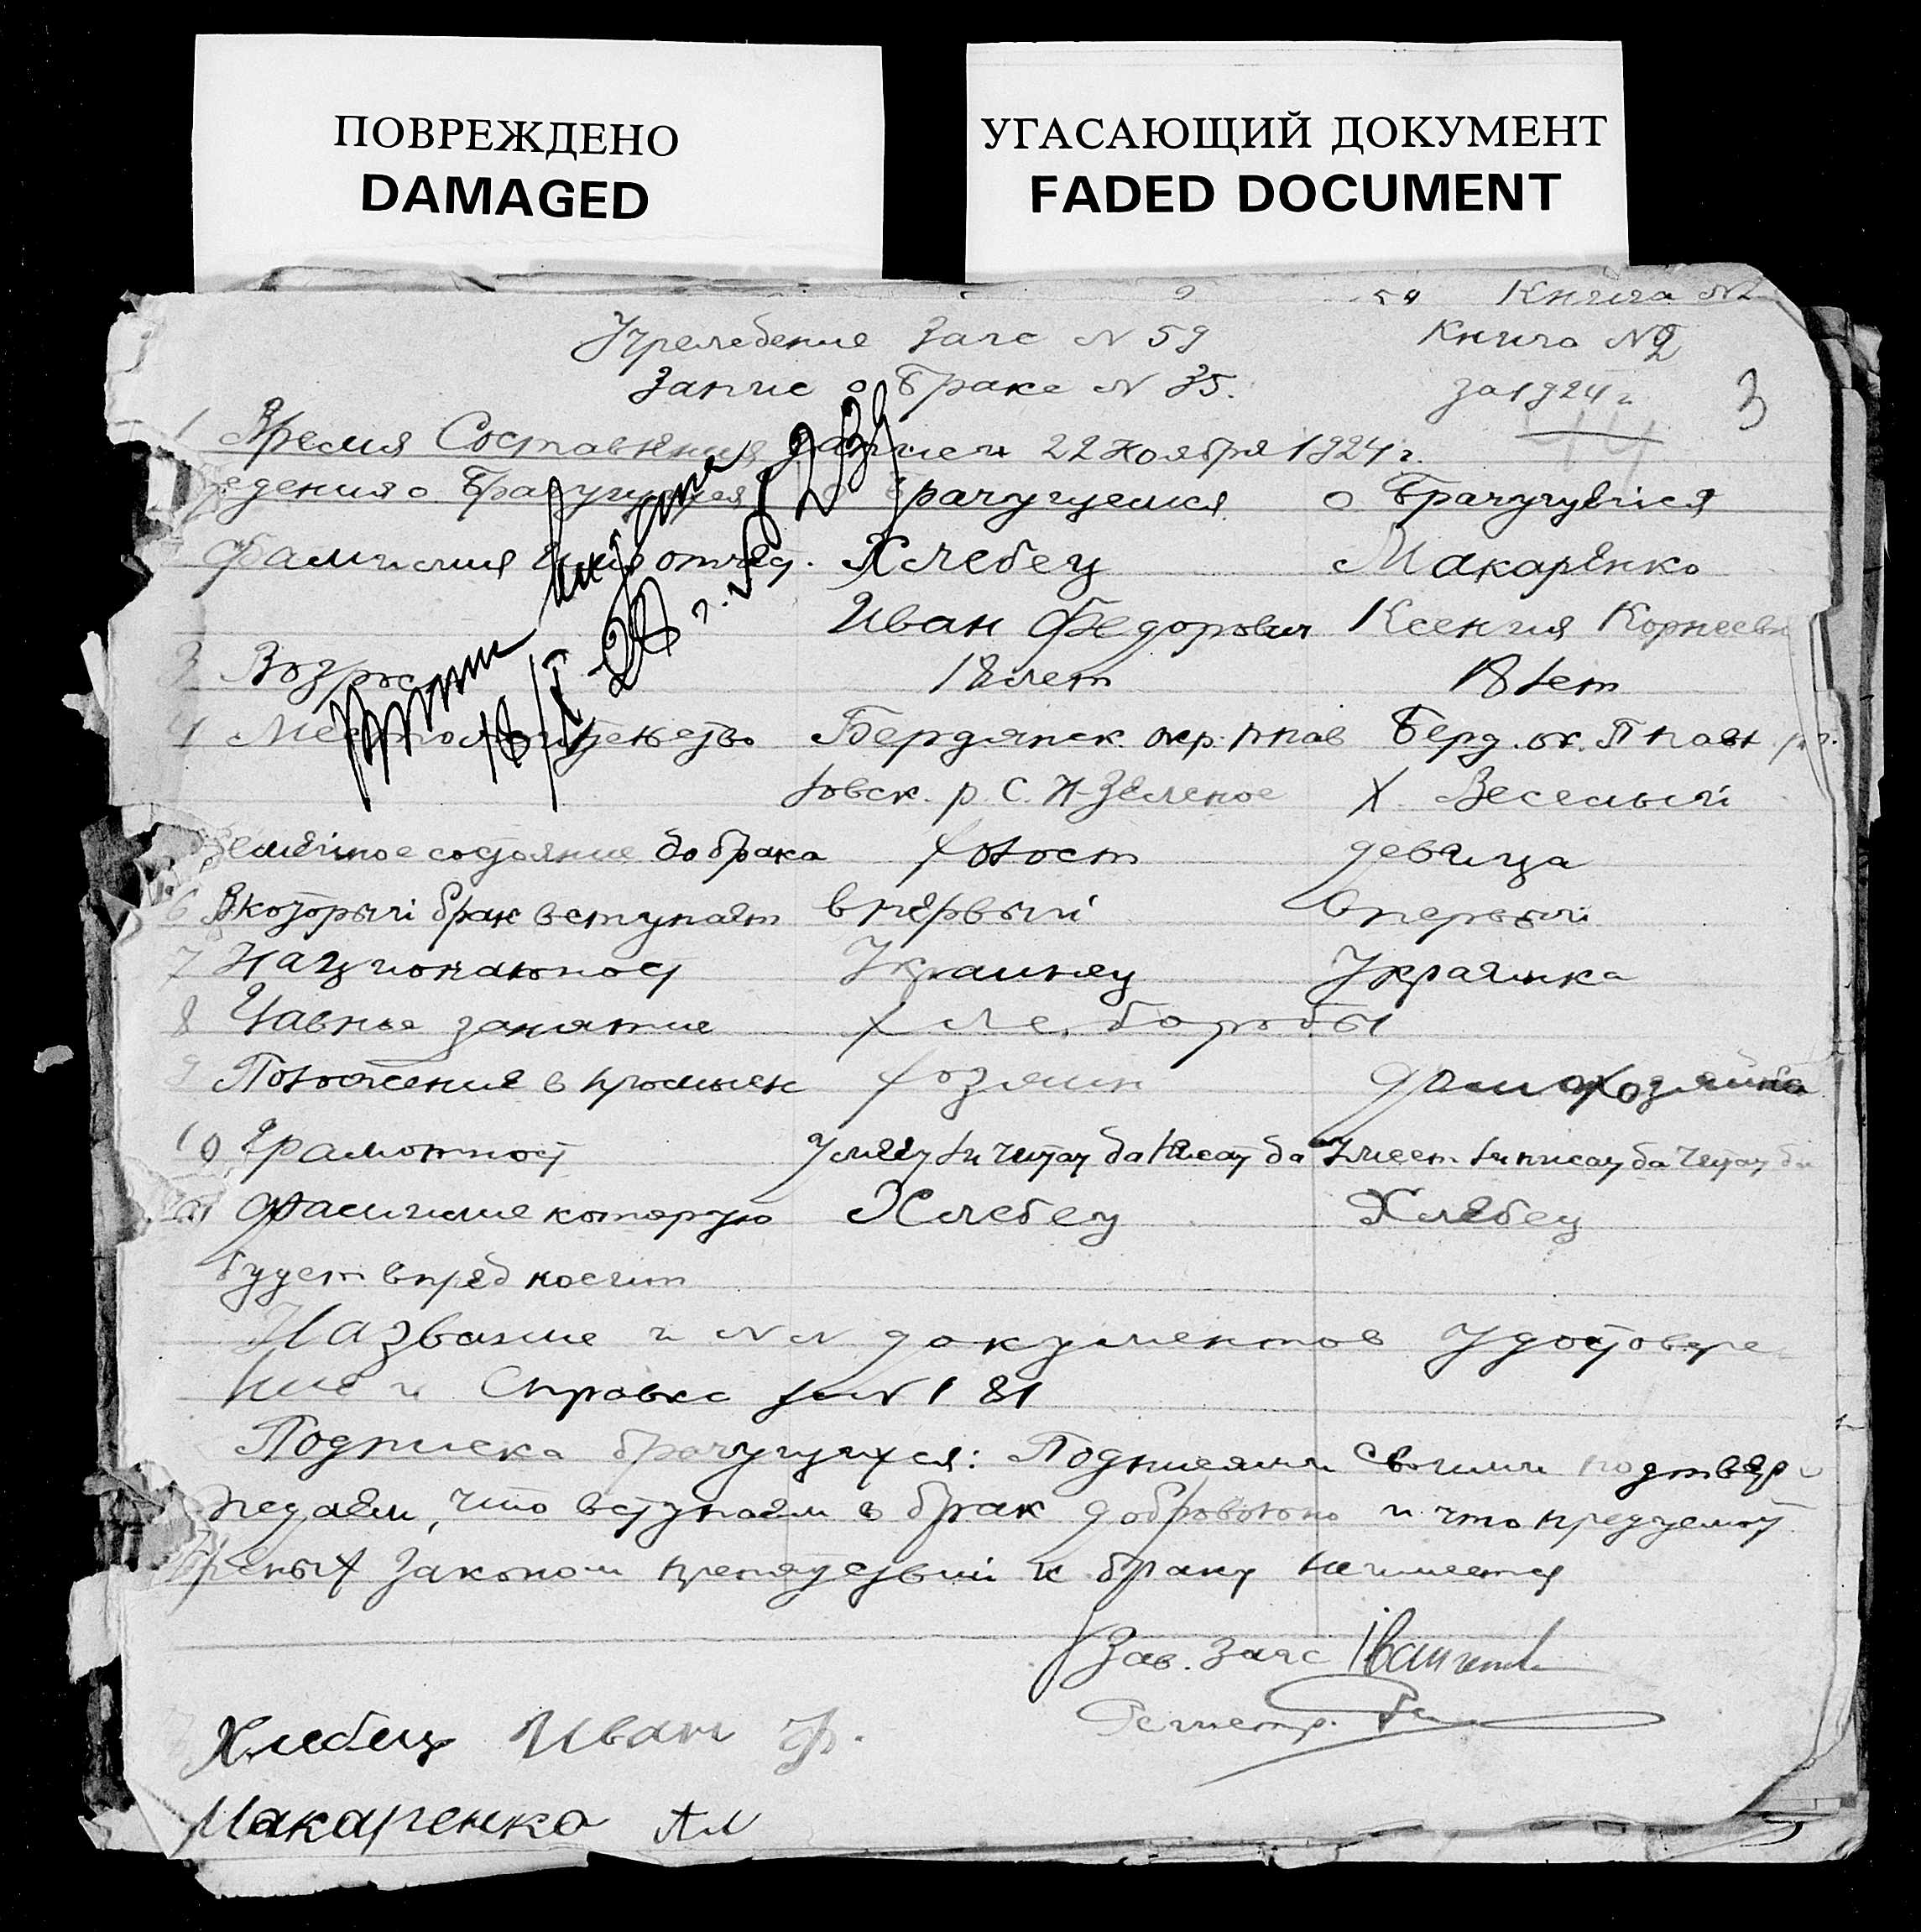 ПОВРЕЖДЕНО
DAMAGED
УГАСАЮЩИЙ ДОКУМЕНТ
FADED DOCUMENT
Книга №2
Учреждение Загс № 59 Книга №2
Запис о Браке № 35. за 1924 г. 3
1 Время Составления записи 22 ноября 1924 г.
едения о Брачущихся о Брачущемся о Брачущейся
Фамилия Имя отчест. Хлебец Макаренко
Иван Федорович Ксения Корнеевн
3 Возраст 18 лет 18 лет
4 Местожительство Бердянск. окр. Пнов Берд. ок. П
ловск. р. С. Н-Зеленое Х. Веселый
Семейное состояние до брака холост девица
6 Вкоторый брак вступает впервый впервый
7 Национальност Украинец Украинка
8 Главное занятие хлеборобы
9 Положения в промысл хозяин домохозяйка
10 Грамотност Умеет ли читат да писат да Умеет ли писат да читат да
11 Фамилие которую Хлебец Хлебец
будет впред носит
Название и №№ документов Удостовере
ние и Справка за № 181
Подписка брачущихся: Подписями своими подтвер
ждаем, что вступаем в брак добровольно и что предусмот
реных законом препядствий к браку неимеется
Зав. Загс
Регистр.
Хлебец Иван Ф.
Макаренко